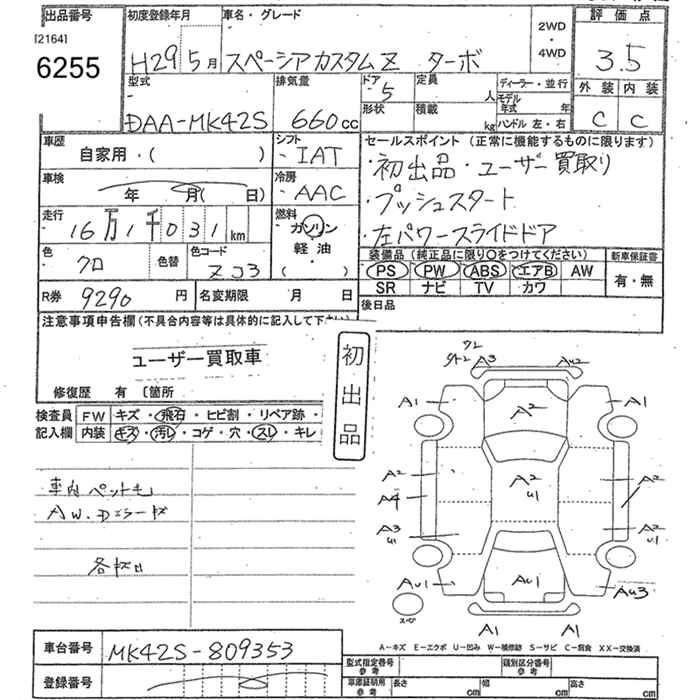 出品番号 初度登録年月 車名・グレード 2WD・4WD 評価点
[2164]
6255 H29 5月 スペーシアカスタムZ ターボ 3.5
型式 排気量 ドア 5 定員 人 ディーラー・並行 外装 内装
形状 積載 kg モデル年式 年 ハンドル 左・右
DAA-MK42S 660cc C C
車歴 シフト セールスポイント(正常に機能するものに限ります)
自家用・( ) IAT ・初出品・ユーザー買取り
車検 冷房 ・プッシュスタート
年 月( 日) AAC
走行 燃料 ・左パワースライドドア
16万1千031km ガソリン
軽油
( )
色 色替 色コード 装備品(純正品に限り○をつけてください) 新車保証書
クロ ZJ3 PS PW ABS エアB AW 有・無
SR ナビ TV カワ
R券 9290円 名変期限 月 日 後日品
注意事項申告欄(不具合内容等は具体的に記入して下さい)
ユーザー買取車
初出品
修復歴 有 〔箇所
検査員記入欄 FW キズ・飛石・ヒビ割・リペア跡・
内装 キズ・汚レ・コゲ・穴・スレ・キレ
A3 AU2
A1 A2 A1
A2 A2 U1 A2
A4
A3 U1 A2 U1
AU1 AU1 AU3
A1 A1
車内ペット毛
AW.Dミラーキズ
各キズ凹
A-キズ E-エクボ U-凹み W-補修跡 S-サビ C-腐食 XX-交換済
車台番号 MK42S-809353
型式指定番号 参考 類別区分番号 参考
登録番号
車庫証明用 参考 長さ cm 幅 cm 高さ cm